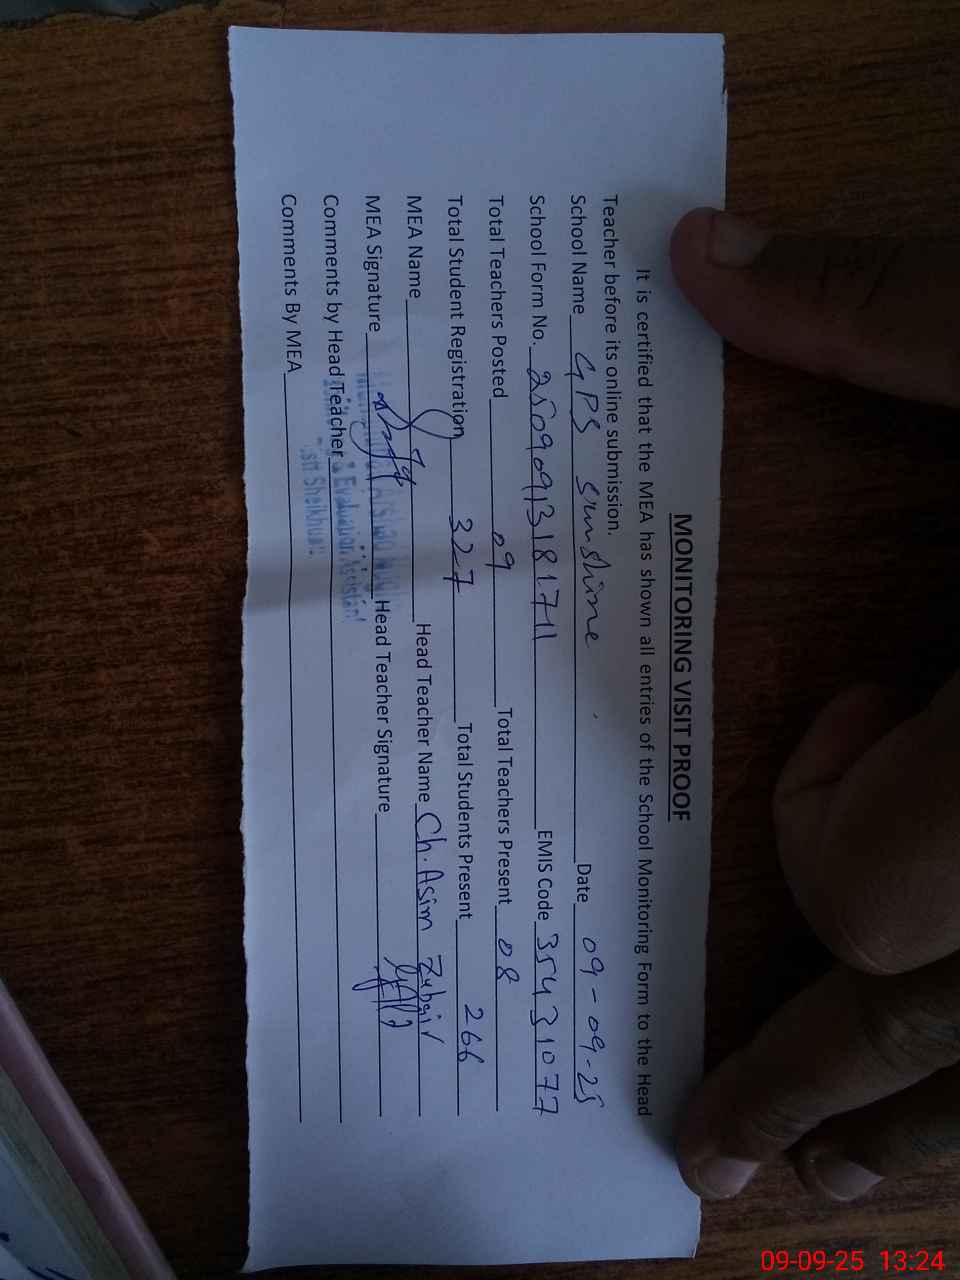 MONITORING VISIT PROOF
It is certified that the MEA has shown all entries of the School Monitoring Form to the Head
Teacher before its online submission.
School Name GPS Sunshine Date 09-09-25
School Form No. EMIS Code 35431077
Total Teachers Posted 09 Total Teachers Present 08
Total Student Registration 327 Total Students Present 266
MEA Name Head Teacher Name Ch. Asim Zubair
MEA Signature Head Teacher Signature
Comments by Head Teacher
Comments By MEA
Evaluation Assistant
Sheikhu
09-09-25 13:24